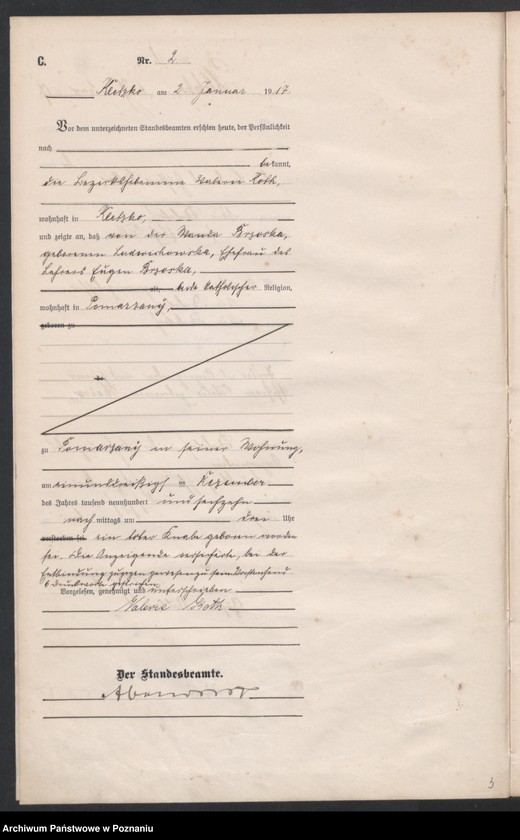 C.
Nr. 2
Kletzko am 2 Januar 1917.
Vor dem unterzeichneten Standesbeamten erschien heute, der Persönlichkeit
nach
bekannt,
die Bezirkshebamme Valerie Roth,
wohnhaft in Kletzko,
und zeigte an, daß von der Wanda Brzoska,
geborenen Ludwichowska, Ehefrau des
Lehrers Eugen Brzoska,
alt, beide katholischer Religion,
wohnhaft in Pomarzany,
geboren zu
zu Pomarzany in seiner Wohnung,
am einunddreißigsten Dezember
des Jahres tausend neunhundert und sechzehn
nach mittags um drei Uhr
verstorben sei ein toter Knabe geboren worden
sei. Die Anzeigende versicherte, bei der
Entbindung zugegen gewesen zu sein. Vorstehend
6 Druckworte gestrichen
Vorgelesen, genehmigt und unterschrieben
Valerie Roth
Der Standesbeamte.
3
Archiwum Państwowe w Poznaniu